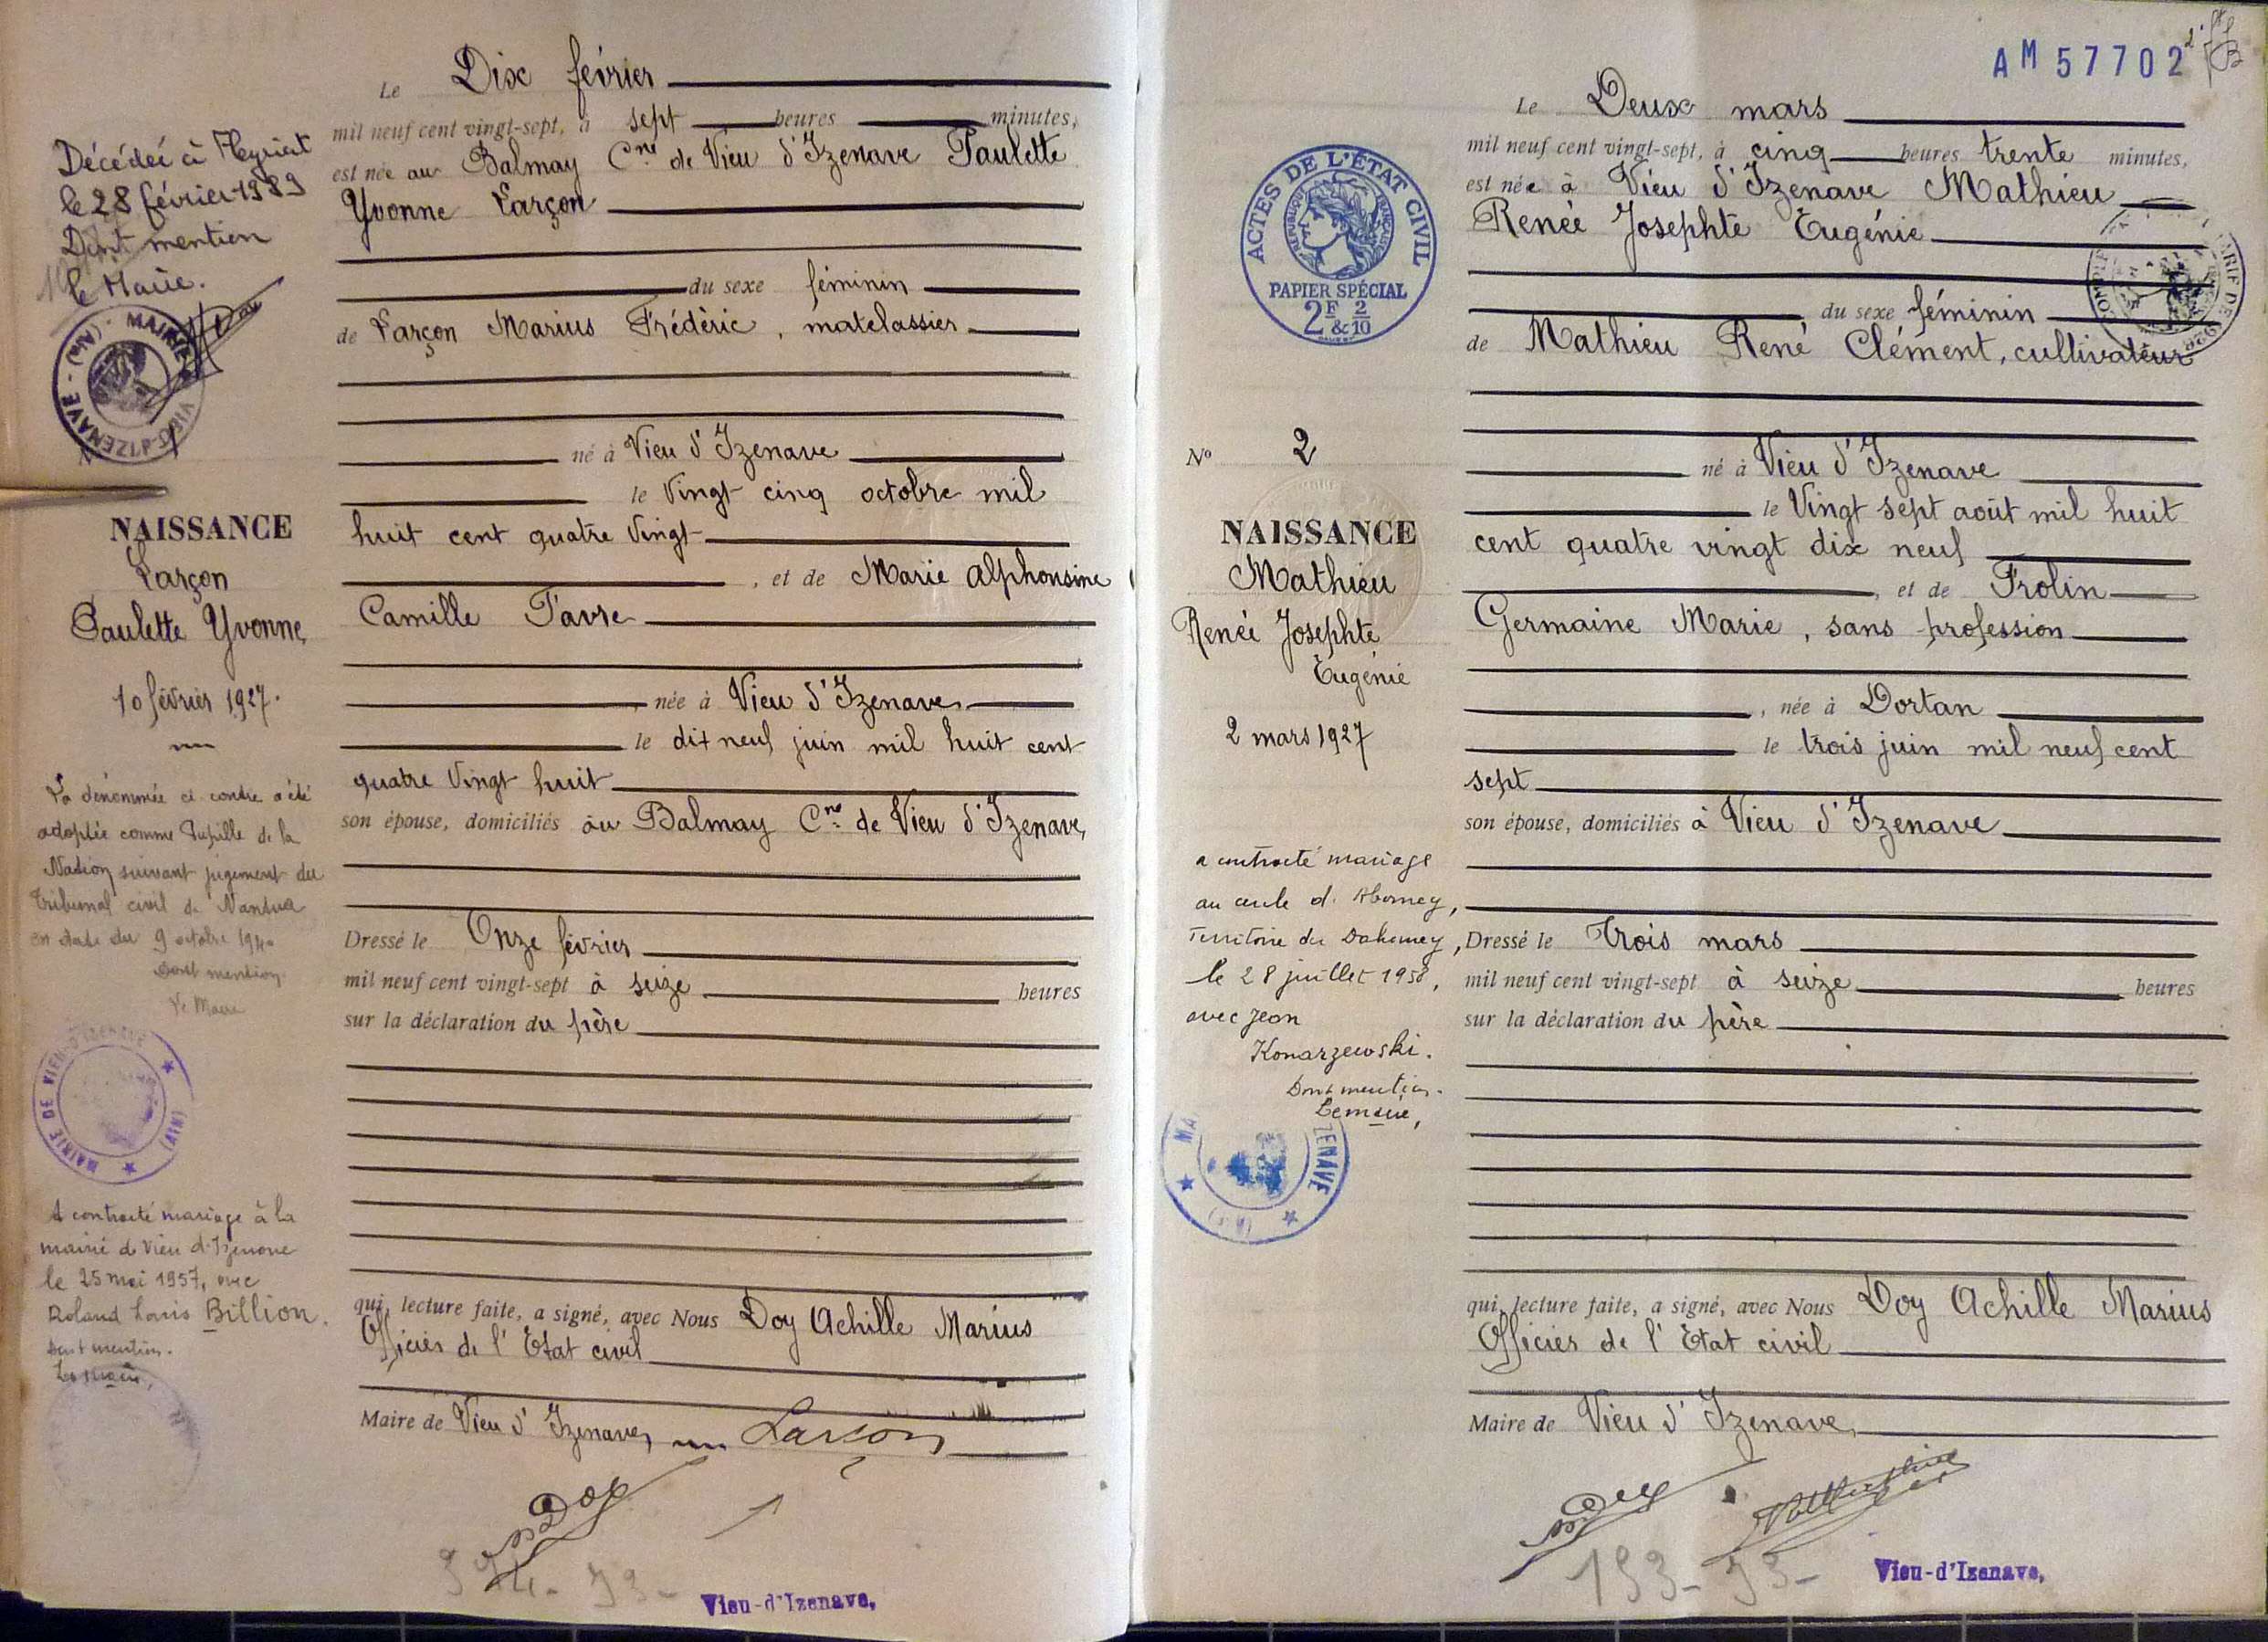 Le Dix février
mil neuf cent vingt-sept, à sept heures minutes,
est née au Balmay Cne de Vieu d'Izenave Paulette
Yvonne Larçon
du sexe féminin
de Larçon Marius Frédéric, matelassier
né à Vieu d'Izenave
le Vingt cinq octobre mil
huit cent quatre Vingt
, et de Marie Alphonsine
Camille Favre
, née à Vieu d'Izenave,
le dix neuf juin mil huit cent
quatre Vingt huit
son épouse, domiciliés au Balmay Cne de Vieu d'Izenave,
Dressé le Onze février
mil neuf cent vingt-sept à seize heures
sur la déclaration du père
qui, lecture faite, a signé, avec Nous Doy Achille Marius
Officier de l'Etat civil
Maire de Vieu d'Izenave, Larçon
Doy
Vieu-d'Izenave,
Décédée à Heyriat
le 28 février 1989
Dont mention
le Maire.
MAIRIE
VIEU-D'IZENAVE - (Ain)
NAISSANCE
Larçon
Paulette Yvonne
10 février 1927.
La dénommée ci contre a été
adoptée comme Pupille de la
Nation suivant jugement du
Tribunal civil de Nantua
en date du 9 octobre 1940
Dont mention.
Le Maire
MAIRIE DE VIEU-D'IZENAVE
(AIN)
A contracté mariage à la
mairie de Vieu d'Izenave
le 25 mai 1957, avec
Roland Louis Billion.
Dont mention.
Le maire,
AM 57702
Le Deux mars
mil neuf cent vingt-sept, à cinq heures trente minutes,
est née à Vieu d'Izenave Mathieu
Renée Josephte Eugénie
du sexe féminin
de Mathieu René Clément, cultivateur
né à Vieu d'Izenave
le Vingt sept août mil huit
cent quatre vingt dix neuf
, et de Frolin
Germaine Marie, sans profession
, née à Dortan
le trois juin mil neuf cent
sept
son épouse, domiciliés à Vieu d'Izenave
Dressé le Trois mars
mil neuf cent vingt-sept à seize heures
sur la déclaration du père
qui, lecture faite, a signé, avec Nous Doy Achille Marius
Officier de l'Etat civil
Maire de Vieu d'Izenave,
Doy
Vieu-d'Izenave,
ACTES DE L'ÉTAT CIVIL
RÉPUBLIQUE FRANÇAISE
PAPIER SPÉCIAL
2F & 2/10
No 2
NAISSANCE
Mathieu
Renée Josephte
Eugénie
2 mars 1927
a contracté mariage
au cercle d'Abomey,
Territoire du Dahomey,
le 28 juillet 1950,
avec Jean
Konarzewski.
Dont mention.
Le maire,
MA
ZENAVE